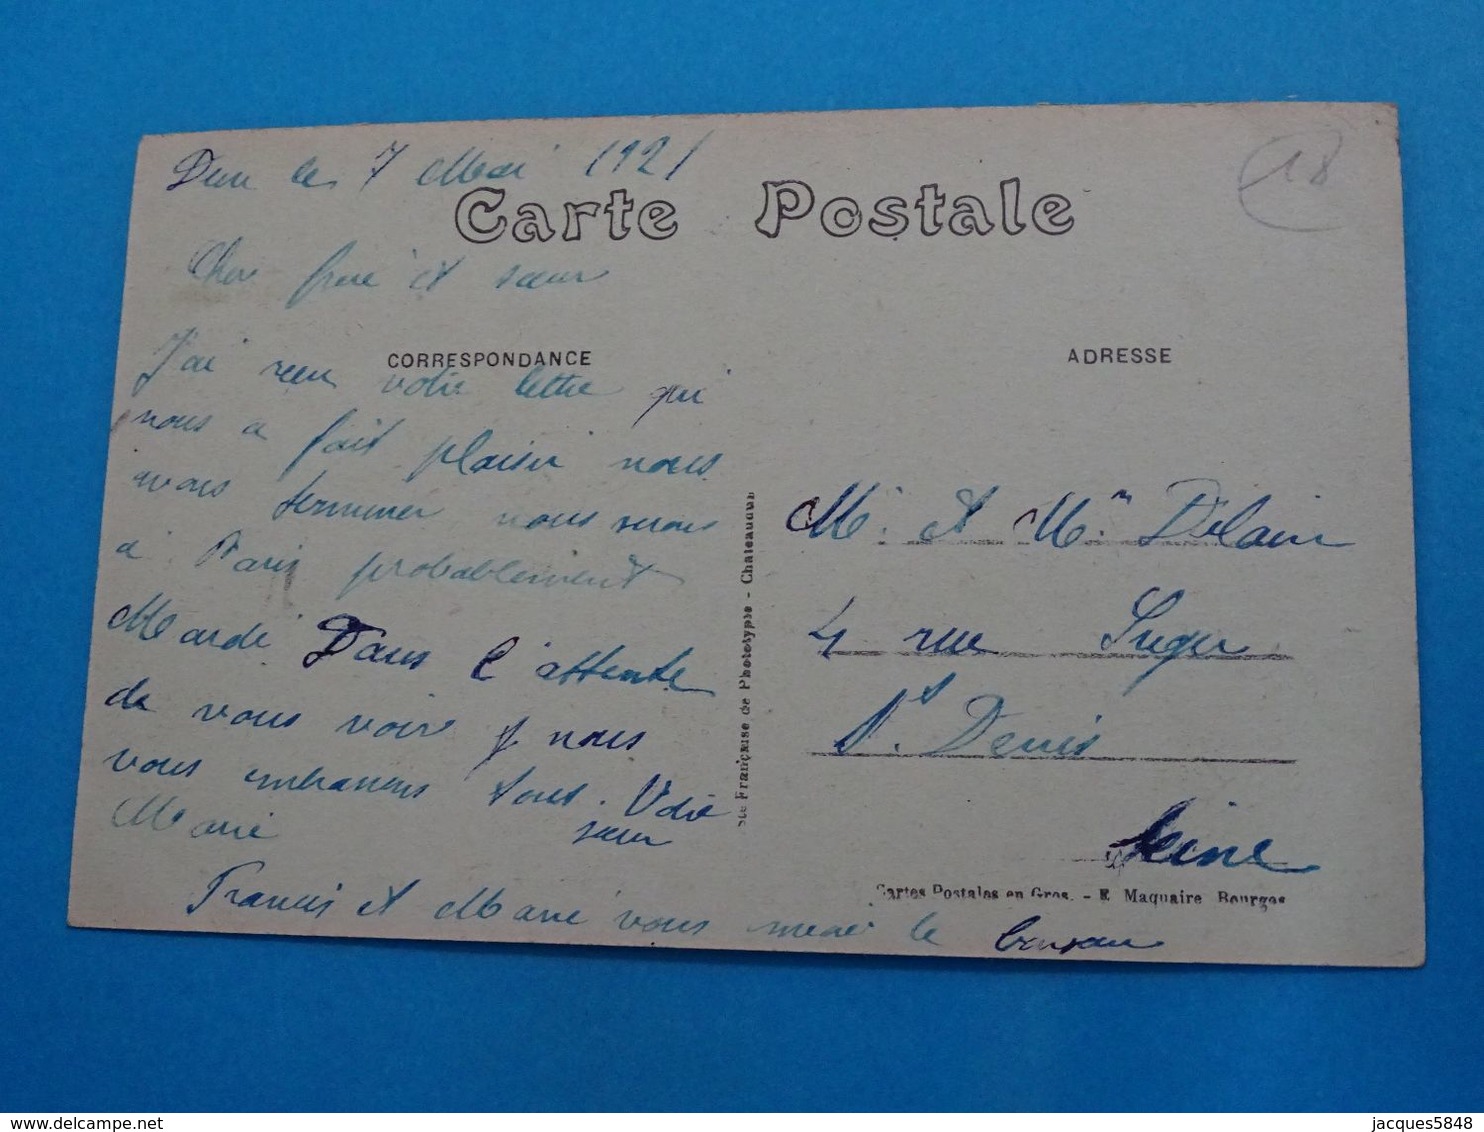 Dun le 7 Mai 1921
18
Carte Postale
Cher frere et sœur
CORRESPONDANCE
J'ai recu votre lettre qui
nous a fait plaisir nous
avons terminer nous serons
a Paris probablement
Mardi Dans l'attente
de vous voir nous
vous embrassons tous. Votre
sœur
Marie
Francis et Marie vous le
ADRESSE
M. et Mm Delain
4 rue Suger
St. Denis
Seine
Sté Française de Phototypie - Chateaudun
Cartes Postales en Gros. - E. Maquaire Bourges
delcampe.net
jacques5848